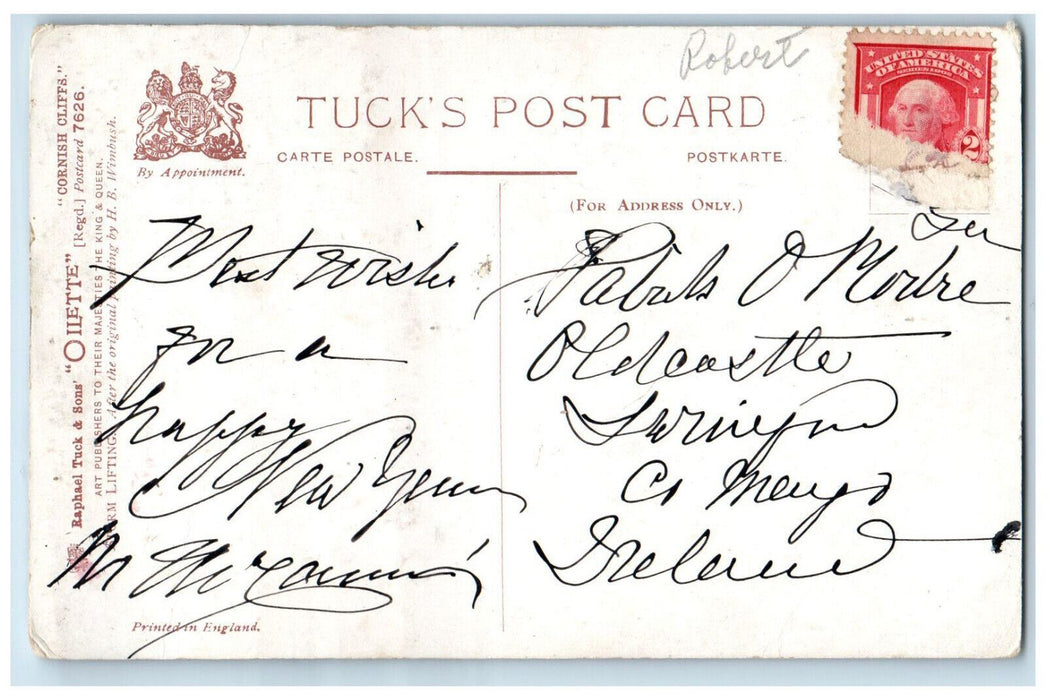 Robert
UNITED STATES
OF AMERICA
SERIES 1902
2
TUCK'S POST CARD
CARTE POSTALE.
POSTKARTE.
By Appointment.
(FOR ADDRESS ONLY.)
Raphael Tuck & Sons' "OILETTE" [Regd.] Postcard 7626. "CORNISH CLIFFS."
ART PUBLISHERS TO THEIR MAJESTIES THE KING & QUEEN.
STORM LIFTING. After the original painting by H. B. Wimbush.
Best wishes
for a
happy
New Year
M
O Moore
Oldcastle
Swineford
Co Mayo
Ireland
Printed in England.